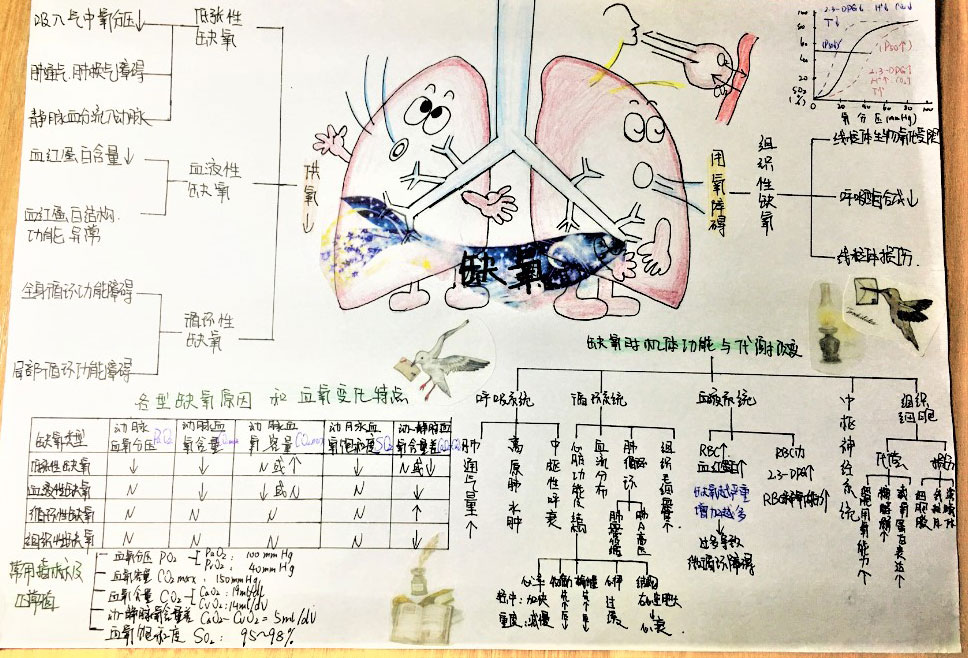 吸入气中氧分压↓
肺通气、肺换气障碍
静脉血分流入动脉
低张性
缺氧
血红蛋白含量↓
血红蛋白结构、
功能异常
血液性
缺氧
全身循环功能障碍
局部循环功能障碍
循环性
缺氧
供氧↓
缺氧
用氧障碍
组织性缺氧
线粒体生物氧化受阻
呼吸酶合成↓
线粒体损伤
2.3-DPG↓ H⁺↓ CO₂↓
T↓
(P50↓)
(P50↑)
2.3-DPG↑
H⁺↑ CO₂↑
T↑
100
80
60
40
20
SO₂
(%)
20 40 60 80 100
氧分压(mmHg)
各型缺氧原因和血氧变化特点
缺氧类型 动脉血氧分压PO₂ 动脉血氧含量 动脉血氧容量CO₂max 动脉血氧饱和度SO₂ 动-静脉血氧含量差
低张性缺氧 ↓ ↓ N或↑ ↓ N或↓
血液性缺氧 N ↓ ↓或N N ↓
循环性缺氧 N N N N ↑
组织性缺氧 N N N N ↓
常用指标及
正常值
血氧分压 PO₂ PaO₂: 100mmHg
PvO₂: 40mmHg
血氧容量 CO₂max: 150mmHg
血氧含量 CO₂ CaO₂: 19ml/dl
CvO₂: 14ml/dl
动-静脉氧含量差 CaO₂-CvO₂=5ml/dl
血氧饱和度 SO₂: 95~98%
缺氧时机体功能与代谢改变
呼吸系统
肺通气量↑
高原肺水肿
中枢性呼衰
循环系统
心脏功能
血流分布
肺循环
组织毛细血管
心率
轻中:加快
重度:减慢
右心肥大
心衰
血液系统
RBC↑
血红蛋白↑
缺氧越严重
增加越多
过多导致
微循环障碍
RBC内
2.3-DPG↑
中枢神经系统
组织
细胞
代偿
损伤
组织用氧能力↑
糖酵解↑
载氧蛋白表达↑
细胞膜
线粒体
溶酶体